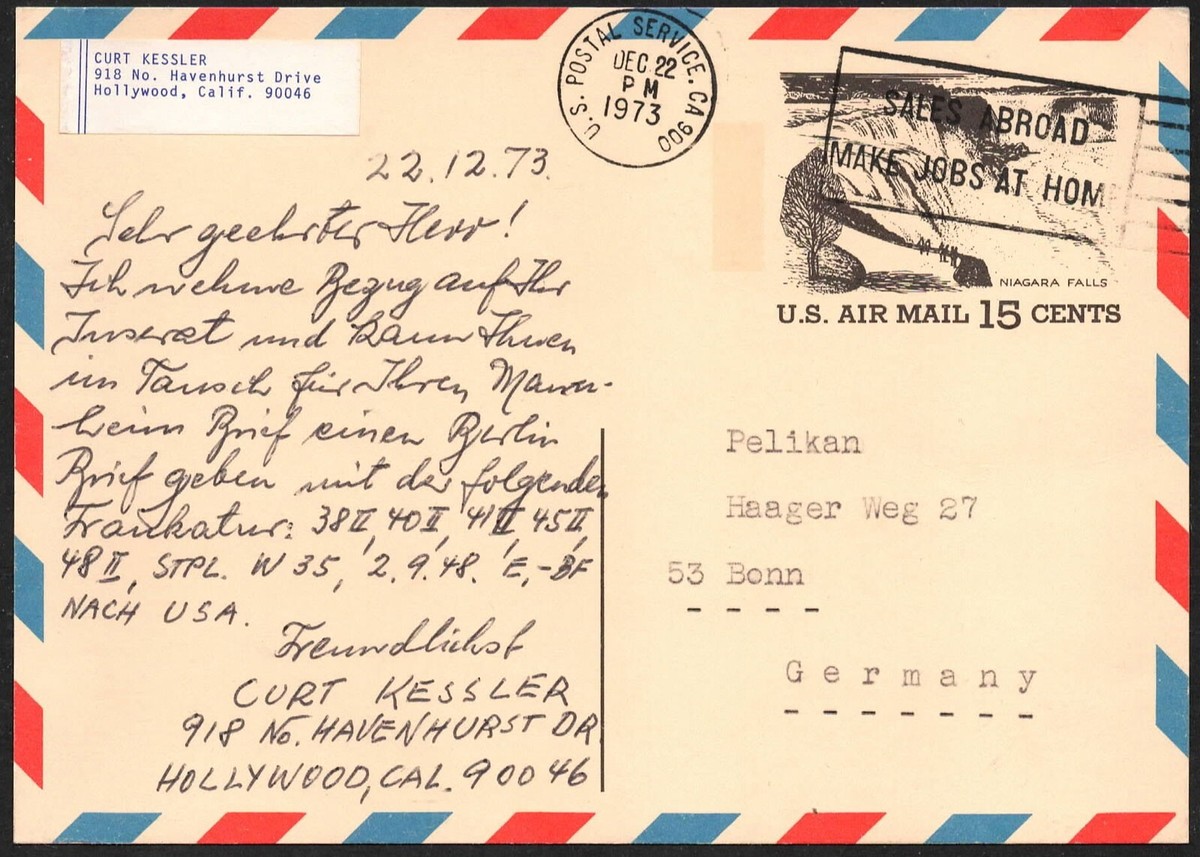 CURT KESSLER
918 No. Havenhurst Drive
Hollywood, Calif. 90046
U.S. POSTAL SERVICE. CA 900
DEC 22
PM
1973
SALES ABROAD
MAKE JOBS AT HOM
NIAGARA FALLS
U.S. AIR MAIL 15 CENTS
22.12.73.
Sehr geehrter Herr!
Ich nehme Bezug auf Ihr
Inserat und kann Ihnen
im Tausch für Ihren Mann-
heim Brief einen Berlin
Brief geben mit der folgenden
Frankatur: 38 II, 40 II, 41 II, 45 II,
48 II, STPL. W 35, 2.9.48. E.-BF
NACH USA.
Freundlichst
CURT KESSLER
918 No. HAVENHURST DR
HOLLYWOOD, CAL. 90046
Pelikan
Haager Weg 27
53 Bonn
Germany